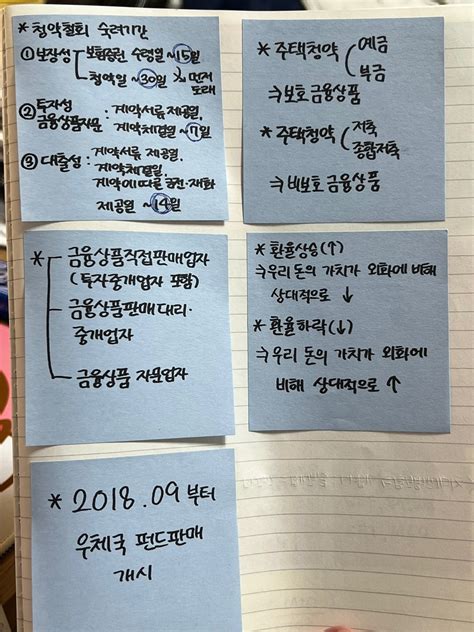 * 청약철회 숙려기간
① 보장성 보험증권 수령일 ~15일
청약일 ~30일 먼저 도래
② 투자성
금융상품자문 : 계약서류 제공일,
계약체결일 ~7일
③ 대출성 : 계약서류 제공일,
계약체결일,
계약에 따른 금전·재화
제공일 ~14일
* 주택청약 예금
부금
⇒ 보호 금융상품
* 주택청약 저축
종합저축
⇒ 비보호 금융상품
* 금융상품직접판매업자
(투자중개업자 포함)
금융상품판매대리·
중개업자
금융상품 자문업자
* 환율상승(↑)
⇒ 우리 돈의 가치가 외화에 비해
상대적으로 ↓
* 환율하락(↓)
⇒ 우리 돈의 가치가 외화에
비해 상대적으로 ↑
* 2018.09 부터
우체국 펀드판매
개시